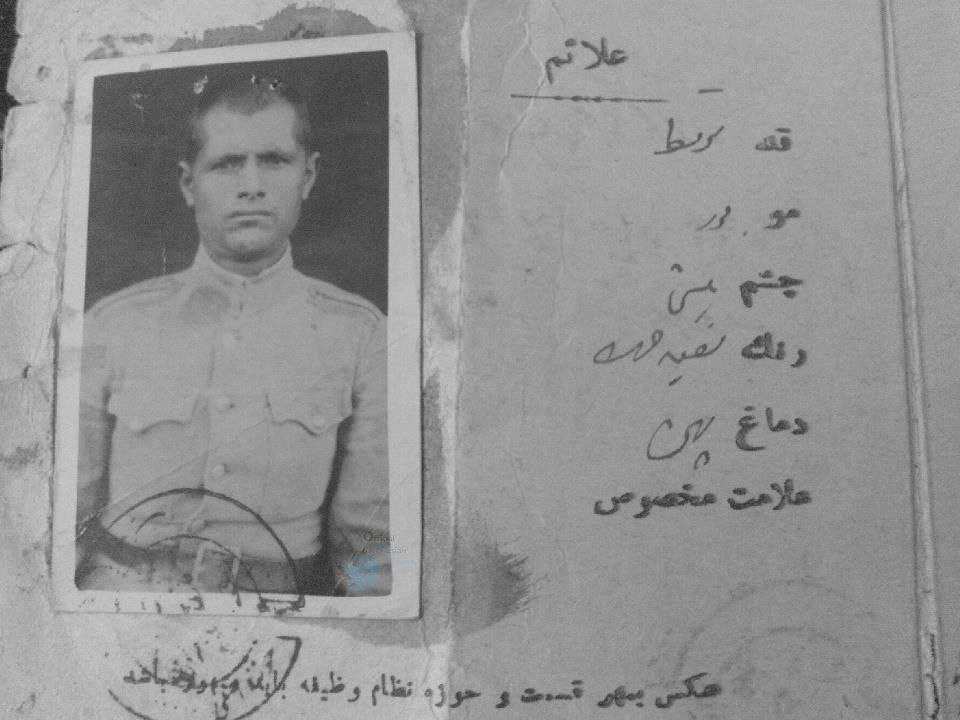 علائم
قد متوسط
مو بور
چشم میشی
رنگ
دماغ پهن
علامت مخصوص
عکس بمهر قسمت و حوزه نظام وظیفه باید ممهور باشد